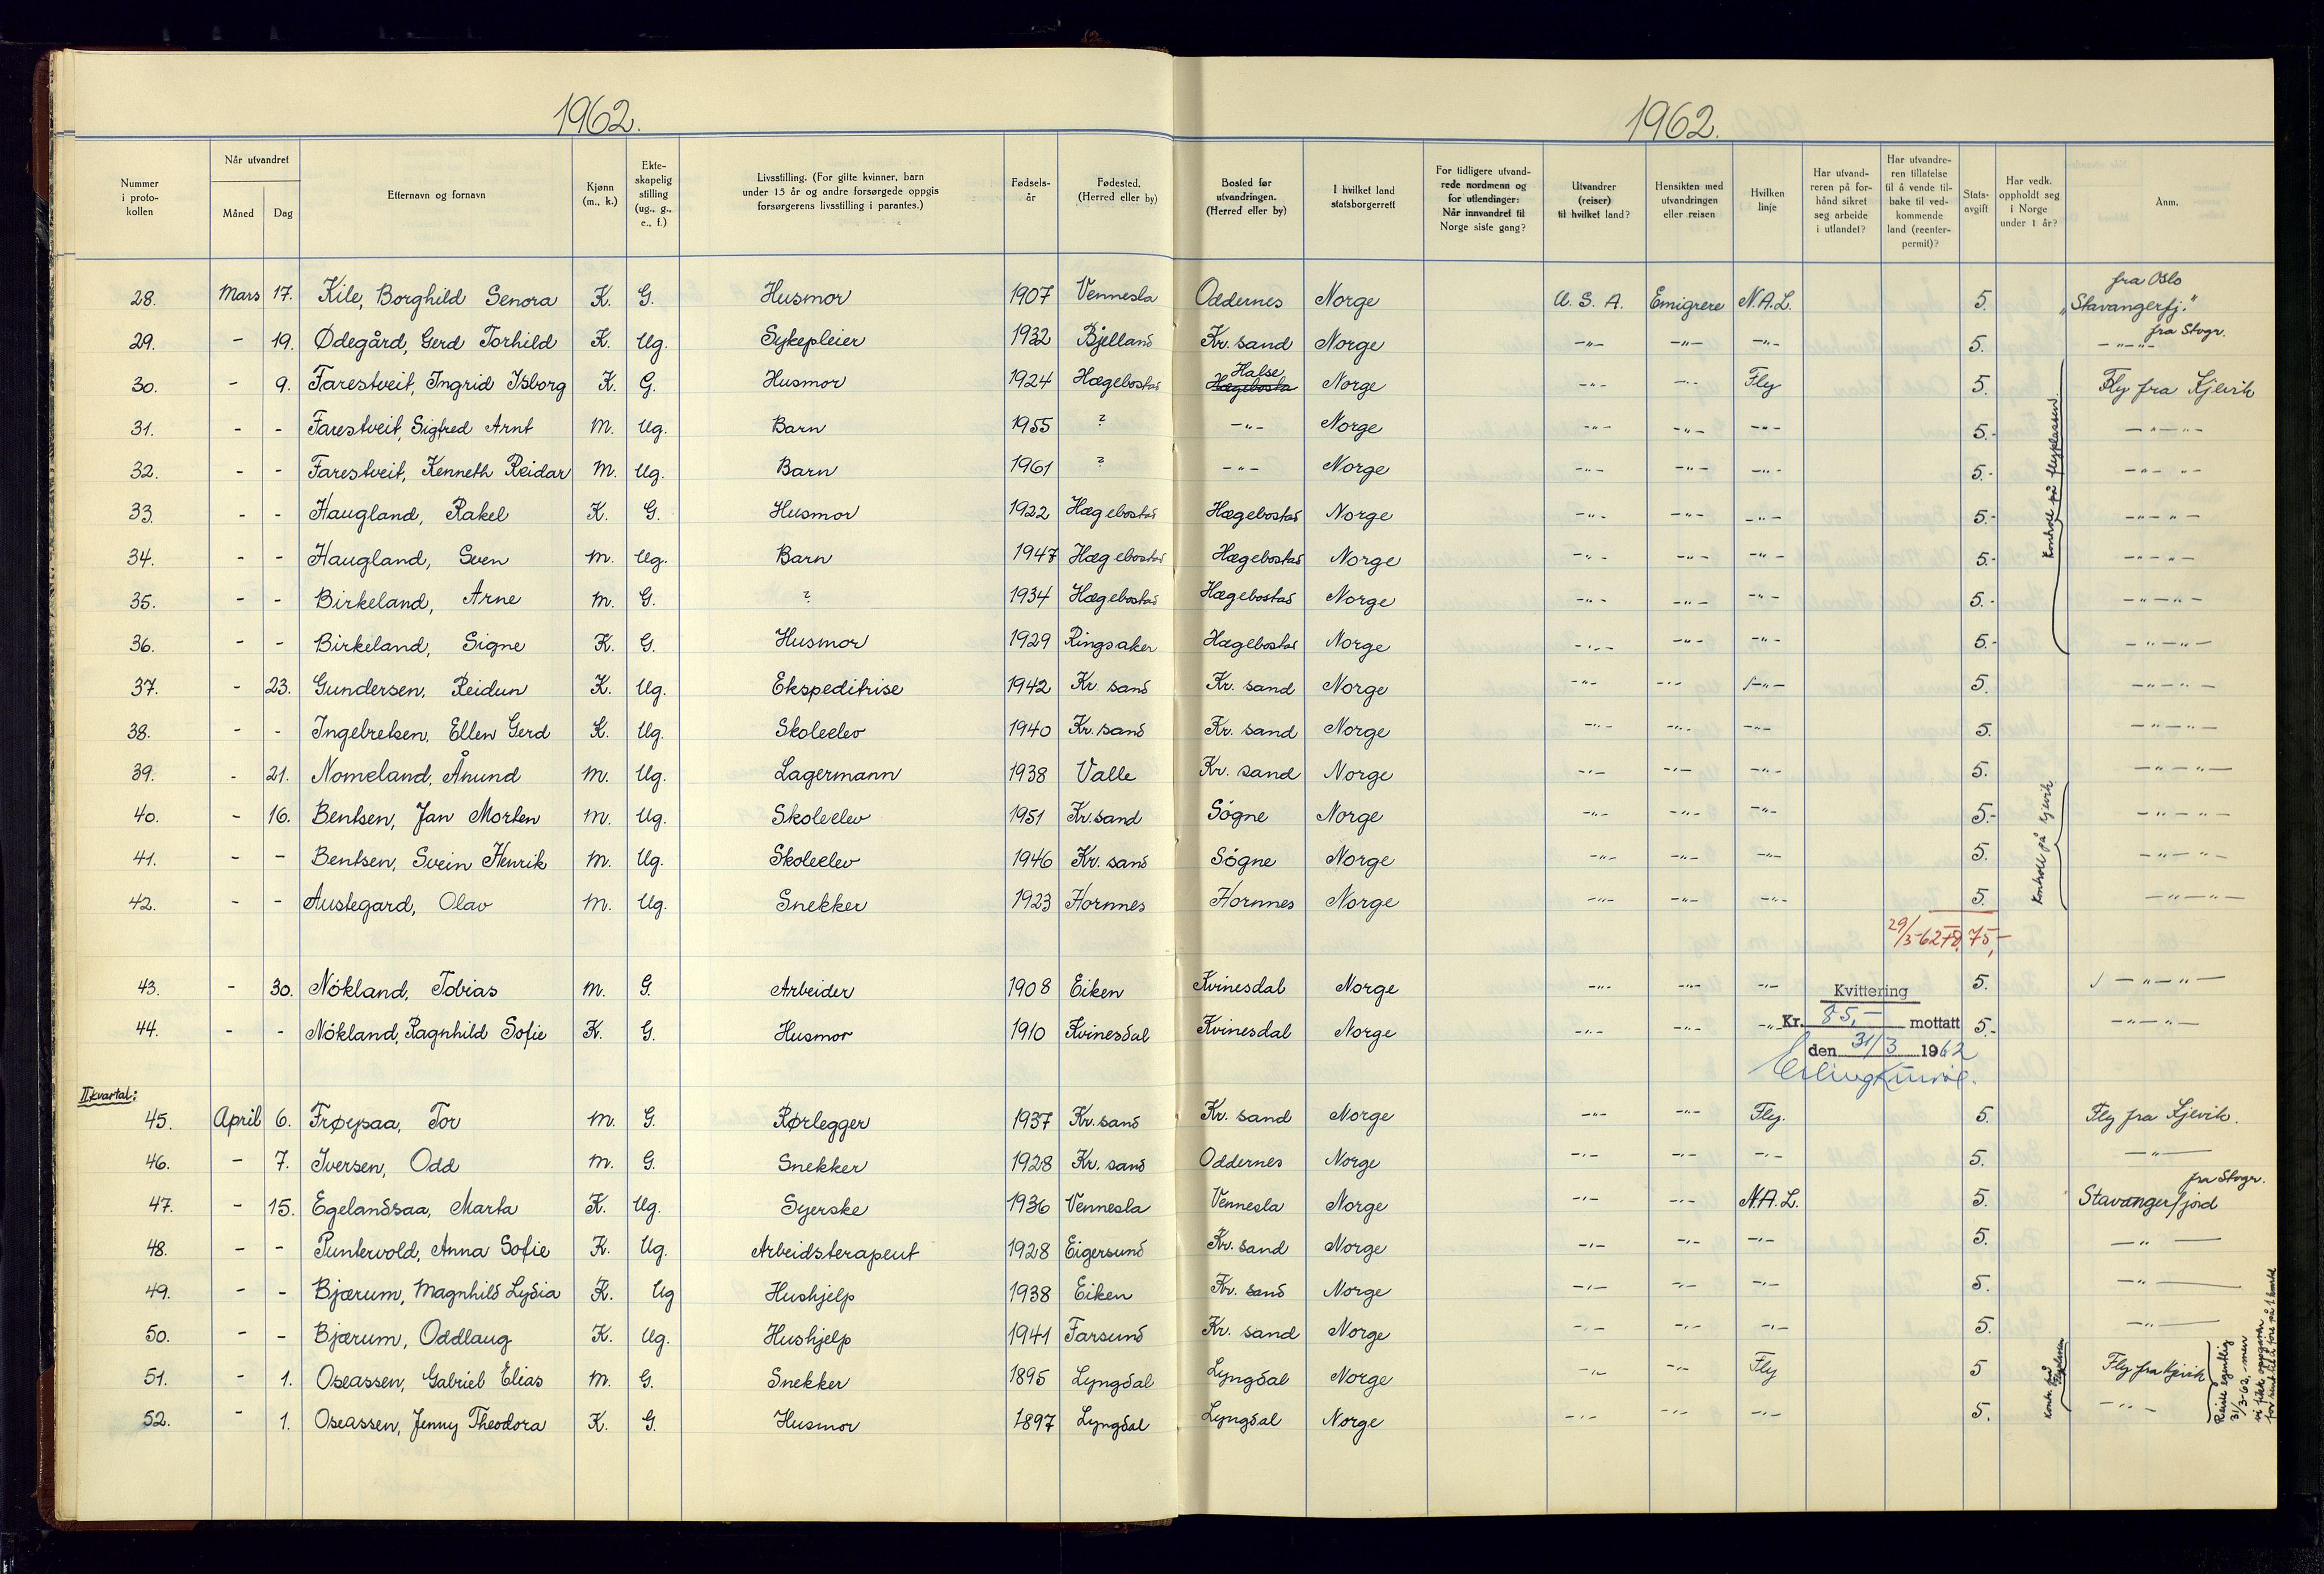 1962.
1962.
Nummer i proto-kollen | Når utvandret Måned Dag | Etternavn og fornavn | Kjønn (m., k.) | Ekte-skapelig stilling (ug., g., e., f.) | Livsstilling. (For gifte kvinner, barn under 15 år og andre forsørgede oppgis forsørgerens livsstilling i parantes.) | Fødsels-år | Fødested. (Herred eller by) | Bosted før utvandringen. (Herred eller by) | I hvilket land statsborgerrett | For tidligere utvand-rede nordmenn og for utlendinger: Når innvandret til Norge siste gang? | Utvandrer (reiser) til hvilket land? | Hensikten med utvandringen eller reisen | Hvilken linje | Har utvand-reren på for-hånd sikret seg arbeide i utlandet? | Har utvandre-ren tillatelse til å vende til-bake til ved-kommende land (reenter-permit)? | Stats-avgift | Har vedk. oppholdt seg i Norge under 1 år? | Anm.
28. Mars 17. Kile, Borghild Senora K. G. Husmor 1907 Vennesla Oddernes Norge U.S.A. Emigrere N.A.L. 5. fra Oslo „Stavangerfj."
29. - 19. Ødegård, Gerd Torhild K. Ug. Sykepleier 1932 Bjelland Kr. sand Norge -"- -"- -"- 5. -"-"- fra Stvgr.
30. - 9. Farestveit, Ingrid Isborg K. G. Husmor 1924 Hægebostad Hægebosta Halse Norge -"- -"- Fly 5. Fly fra Kjevik
31. - - Farestveit, Sigfred Arnt M. Ug. Barn 1955 ? -"- Norge -"- -"- -"- 5.- -"-"-
32. - - Farestveit, Kenneth Reidar M. Ug. Barn 1961 ? -"- Norge -"- -"- -"- 5.- -"-"-
33. - - Haugland, Rakel K. G. Husmor 1922 Hægebostad Hægebostad Norge -"- -"- -"- 5.- -"-"-
34. - - Haugland, Sven M. Ug. Barn 1947 Hægebostad Hægebostad Norge -"- -"- -"- 5.- -"-"-
35. - - Birkeland, Arne M. G. ? 1934 Hægebostad Hægebostad Norge -"- -"- -"- 5.- -"-"-
36. - - Birkeland, Signe K. G. Husmor 1929 Ringsaker Hægebostad Norge -"- -"- -"- 5.- -"-"-
Kontroll på flyplassen.
37. - 23. Gundersen, Reidun K. Ug. Ekspeditrise 1942 Kr. sand Kr. sand Norge -"- -"- -"- 5. -"-"-
38. - - Ingebretsen, Ellen Gerd K. Ug. Skoleelev 1940 Kr. sand Kr. sand Norge -"- -"- -"- 5. -"-"-
39. - 21. Nomeland, Ånund M. Ug. Lagermann 1938 Valle Kr. sand Norge -"- -"- -"- 5. -"-"-
40. - 16. Bentsen, Jan Morten M. Ug. Skoleelev 1951 Kr. sand Søgne Norge -"- -"- -"- 5.- -"-"-
41. - - Bentsen, Svein Henrik M. Ug. Skoleelev 1946 Kr. sand Søgne Norge -"- -"- -"- 5. -"-"-
42. - - Austegard, Olav M. Ug. Snekker 1923 Hornnes Hornnes Norge -"- -"- -"- 5. -"-"-
Kontroll på Kjevik
29/3-62 75,-
43. - 30. Nökland, Tobias M. G. Arbeider 1908 Eiken Kvinesdal Norge -"- -"- -"- 5. -"-"-
Kvittering
44. - - Nökland, Ragnhild Sofie K. G. Husmor 1910 Kvinesdal Kvinesdal Norge -"- -"- -"- 5.- -"-"-
Kr. 85,- mottatt
den 31/3 1962
II kvartal:
45. April 6. Frøysaa, Tor M. G. Rørlegger 1937 Kr. sand Kr. sand Norge -"- -"- Fly. 5. Fly fra Kjevik.
46. - 7. Iversen, Odd M. G. Snekker 1928 Kr. sand Oddernes Norge -"- -"- -"- 5. -"-
47. - 15. Egelandsaa, Marta K. Ug. Syerske 1936 Vennesla Vennesla Norge -"- -"- N.A.L. 5. Stavangerfjord fra Stvgr.
48. - - Puntervold, Anna Sofie K. Ug. Arbeidsterapeut 1928 Eigersund Kr. sand Norge -"- -"- -"- 5. -"-
49. - - Bjærum, Magnhild Lydia K. Ug Hushjelp 1938 Eiken Kr. sand Norge -"- -"- -"- 5. -"-
50. - - Bjærum, Oddlaug K. Ug. Hushjelp 1941 Farsund Kr. sand Norge -"- -"- -"- 5. -"-
51. - 1. Oseassen, Gabriel Elias M. G. Snekker 1895 Lyngdal Lyngdal Norge -"- -"- Fly 5 Fly fra Kjevik
52. - 1. Oseassen, Jenny Theodora K. G. Husmor 1897 Lyngdal Lyngdal Norge -"- -"- -"- 5. -"-
Kontr. på flyplassen
Reiste egentlig
31/3-62, men
vi fikk oppgaven
for sent til å føre på 1. kvartal